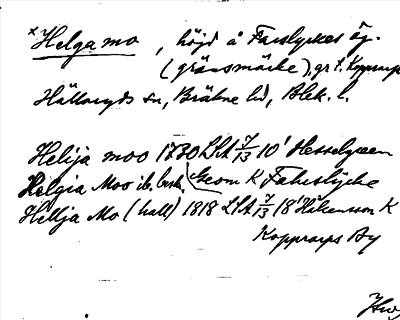 x Helga mo, höjd å Farslyckes äg.
(gränsmärke), gr t. Kopparp
Hällaryds sn, Bräkne hd, Blek. l.
Helija moo 1730 LSA 7/13 10' Hesselgreen
Helgia Moo ib. beskr. Geom K Fahrslycke
Hellja Mo (hall) 1818 LSA 7/13 18 Håkansson K
Kopparps By